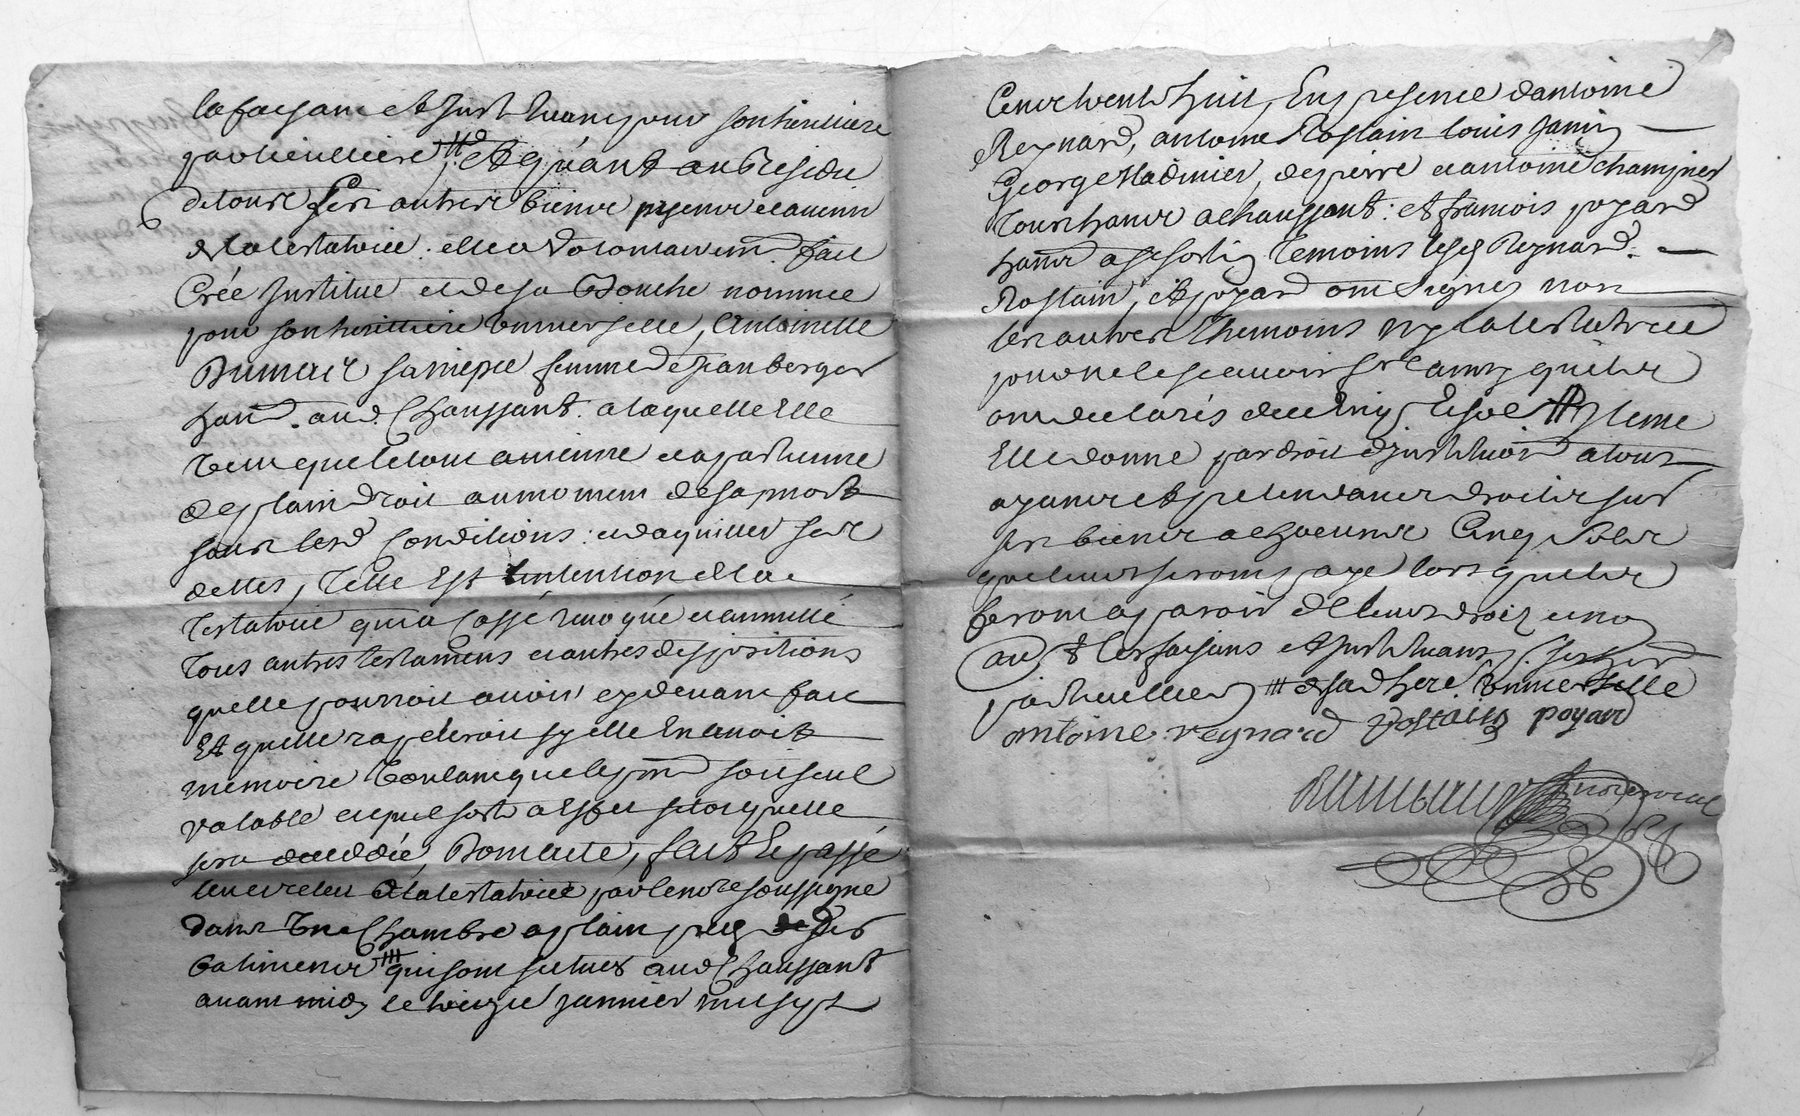 la faisant et instituant pour son heritiere
particulliere et quant au Residu
de tous ses autres biens presens et advenir
de la testatrice elle a volontairemt fait
Créé Institue et de sa Bouche nommée
pour son heritiere universelle, Antoinette
sa niepce femme de Jean berger
hant aud Chaussant a laquelle Elle
veut que le tout avienne et apartienne
de plain droit au moment de sa mort
sous lesd Conditions et daquitter ses
dettes, Telle Est lintention de la
Testatrice qui a Cassé revoqué et annullé
Tous autres testamens et autres dispositions
quelle pourroit avoir cydevant fait
Et quelle rapeleroit sy elle En avoit
memoire voulant que le pnt soit seul
valable et quil sorte a Effet
sera decedée, fait Et passé
leu et releu a la testatrice par le nore soussigné
dans Une Chambre a plain pied de ses
batimens qui sont situés aud Chaussant
avant midy le janvier mil sept
Cent trente huit, En presence dantoine
Reynard, antoine Rostain louis Jamin
George Madinier, de pierre et antoine Champnes
Tous hants a Chaussant: et francois poyard
hant a Temoins lesq Reynard
Rostain, et poyard ont signés non
les autres Themoins ny la testatrice
pour ne le scavoir quils
ont declarés de ce Enquis Et
Elle donne par droit dinstitution a tous
ayants et pretendants droits sur
ses biens a chacuns Cinq sols
que leurs seront payé lors quils
feront aparoir de leurs droits
les faisans et instituans ses her
particulliers de sad here. Universelle
antoine reynard Rostaing poyard
nore royal